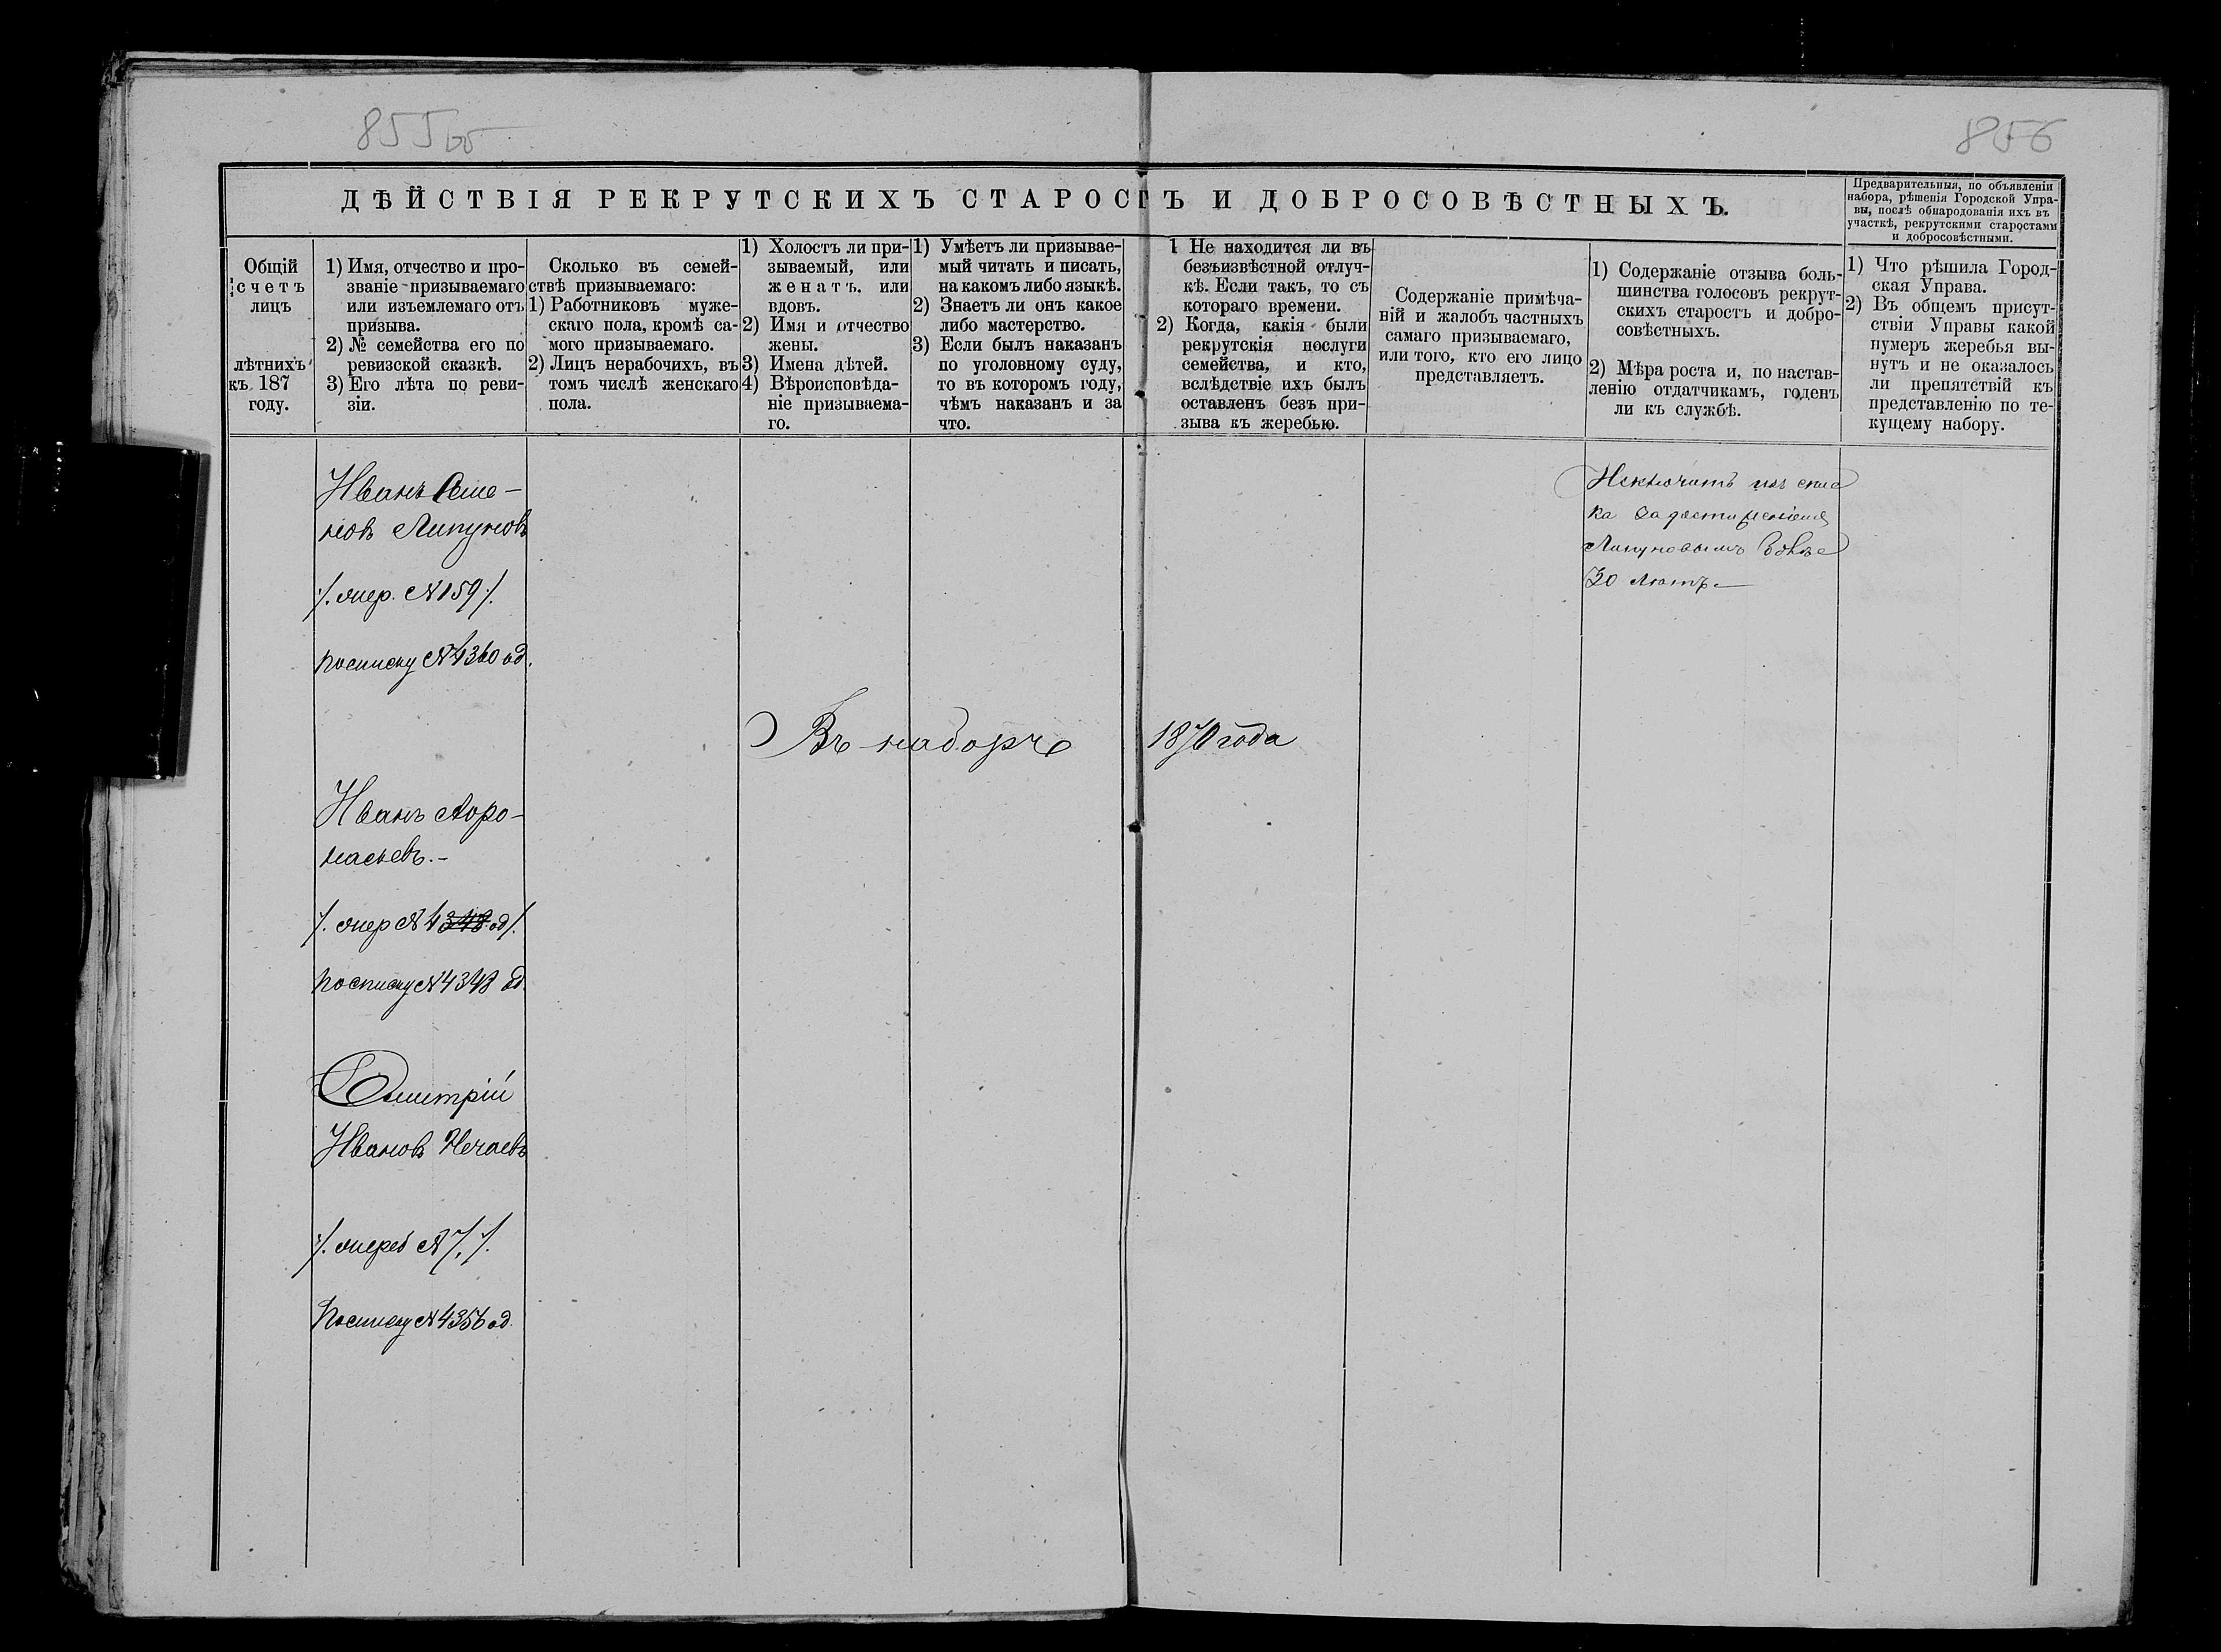 855об
856
ДѢЙСТВІЯ РЕКРУТСКИХЪ СТАРОСТЪ И ДОБРОСОВѢСТНЫХЪ.
Предварительныя, по объявленіи
набора, рѣшенія Городской Упра-
вы, послѣ обнародованія ихъ въ
участкѣ, рекрутскими старостами
и добросовѣстными.
Общій
счетъ
лицъ
лѣтнихъ
къ 187
году.
1) Имя, отчество и про-
званіе призываемаго
или изъемлемаго отъ
призыва.
2) № семейства его по
ревизской сказкѣ.
3) Его лѣта по реви-
зіи.
Сколько въ семей-
ствѣ призываемаго:
1) Работниковъ муже-
скаго пола, кромѣ са-
мого призываемаго.
2) Лицъ нерабочихъ, въ
томъ числѣ женскаго
пола.
1) Холостъ ли при-
зываемый, или
женатъ. или
вдовъ.
2) Имя и отчество
жены.
3) Имена дѣтей.
4) Вѣроисповѣда-
ніе призываема-
го.
1) Умѣетъ ли призывае-
мый читать и писать,
на какомъ либо языкѣ.
2) Знаетъ ли онъ какое
либо мастерство.
3) Если былъ наказанъ
по уголовному суду,
то въ которомъ году,
чѣмъ наказанъ и за
что.
1 Не находится ли въ
безъизвѣстной отлуч-
кѣ. Если такъ, то съ
котораго времени.
2) Когда, какія были
рекрутскія послуги
семейства, и кто,
вслѣдствіе ихъ былъ
оставленъ безъ при-
зыва къ жеребью.
Содержаніе примѣча-
ній и жалобъ частныхъ
самаго призываемаго,
или того, кто его лицо
представляетъ.
1) Содержаніе отзыва боль-
шинства голосовъ рекрут-
скихъ старостъ и добро-
совѣстныхъ.
2) Мѣра роста и, по настав-
ленію отдатчикамъ, годенъ
ли къ службѣ.
1) Что рѣшила Город-
ская Управа.
2) Въ общемъ присут-
ствіи Управы какой
нумеръ жеребья вы-
нутъ и не оказалось
ли препятствій къ
представленію по те-
кущему набору.
Иванъ Семе-
новъ Липуновъ
/. жер. №159 /.
по списку №4360 од.
Исключить изъ спис
ка за достиженіемъ
Липуновымъ болѣе
30 лѣтъ.
Въ наборѣ 1870 года
Иванъ
/. жер № 4348 од /.
по списку №4348 од.
Дмитрій
Ивановъ Нечаевъ
/. жереб № 7, /.
По списку №4356 од.